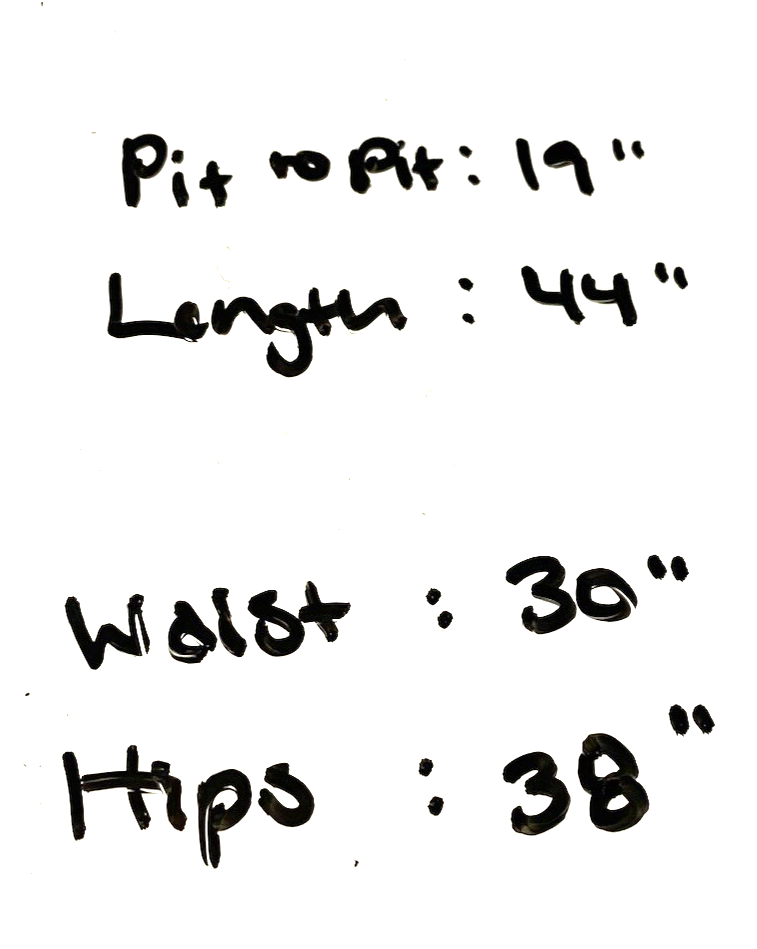 Pit to Pit: 19"
Length : 44"
Waist : 30"
Hips : 38"